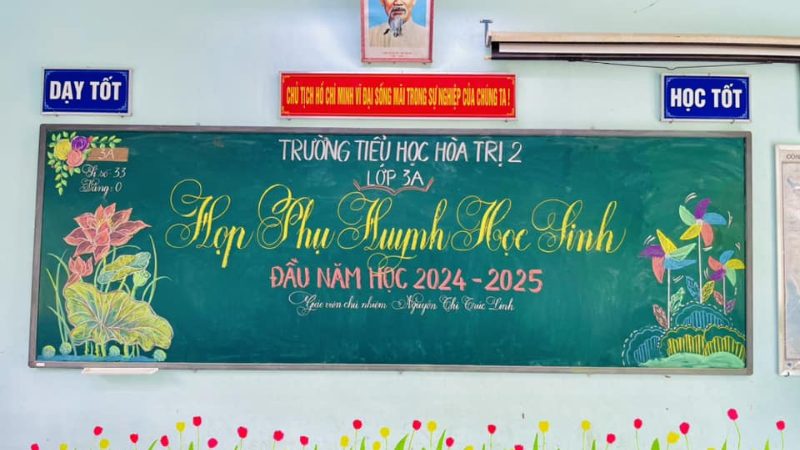 DẠY TỐT
CHỦ TỊCH HỒ CHÍ MINH VĨ ĐẠI SỐNG MÃI TRONG SỰ NGHIỆP CỦA CHÚNG TA!
HỌC TỐT
TRƯỜNG TIỂU HỌC HÒA TRỊ 2
LỚP 3A
3A
Sĩ số: 33
Vắng: 0
Họp Phụ Huynh Học Sinh
ĐẦU NĂM HỌC 2024 - 2025
Giáo viên chủ nhiệm: Nguyễn Thị Trúc Linh